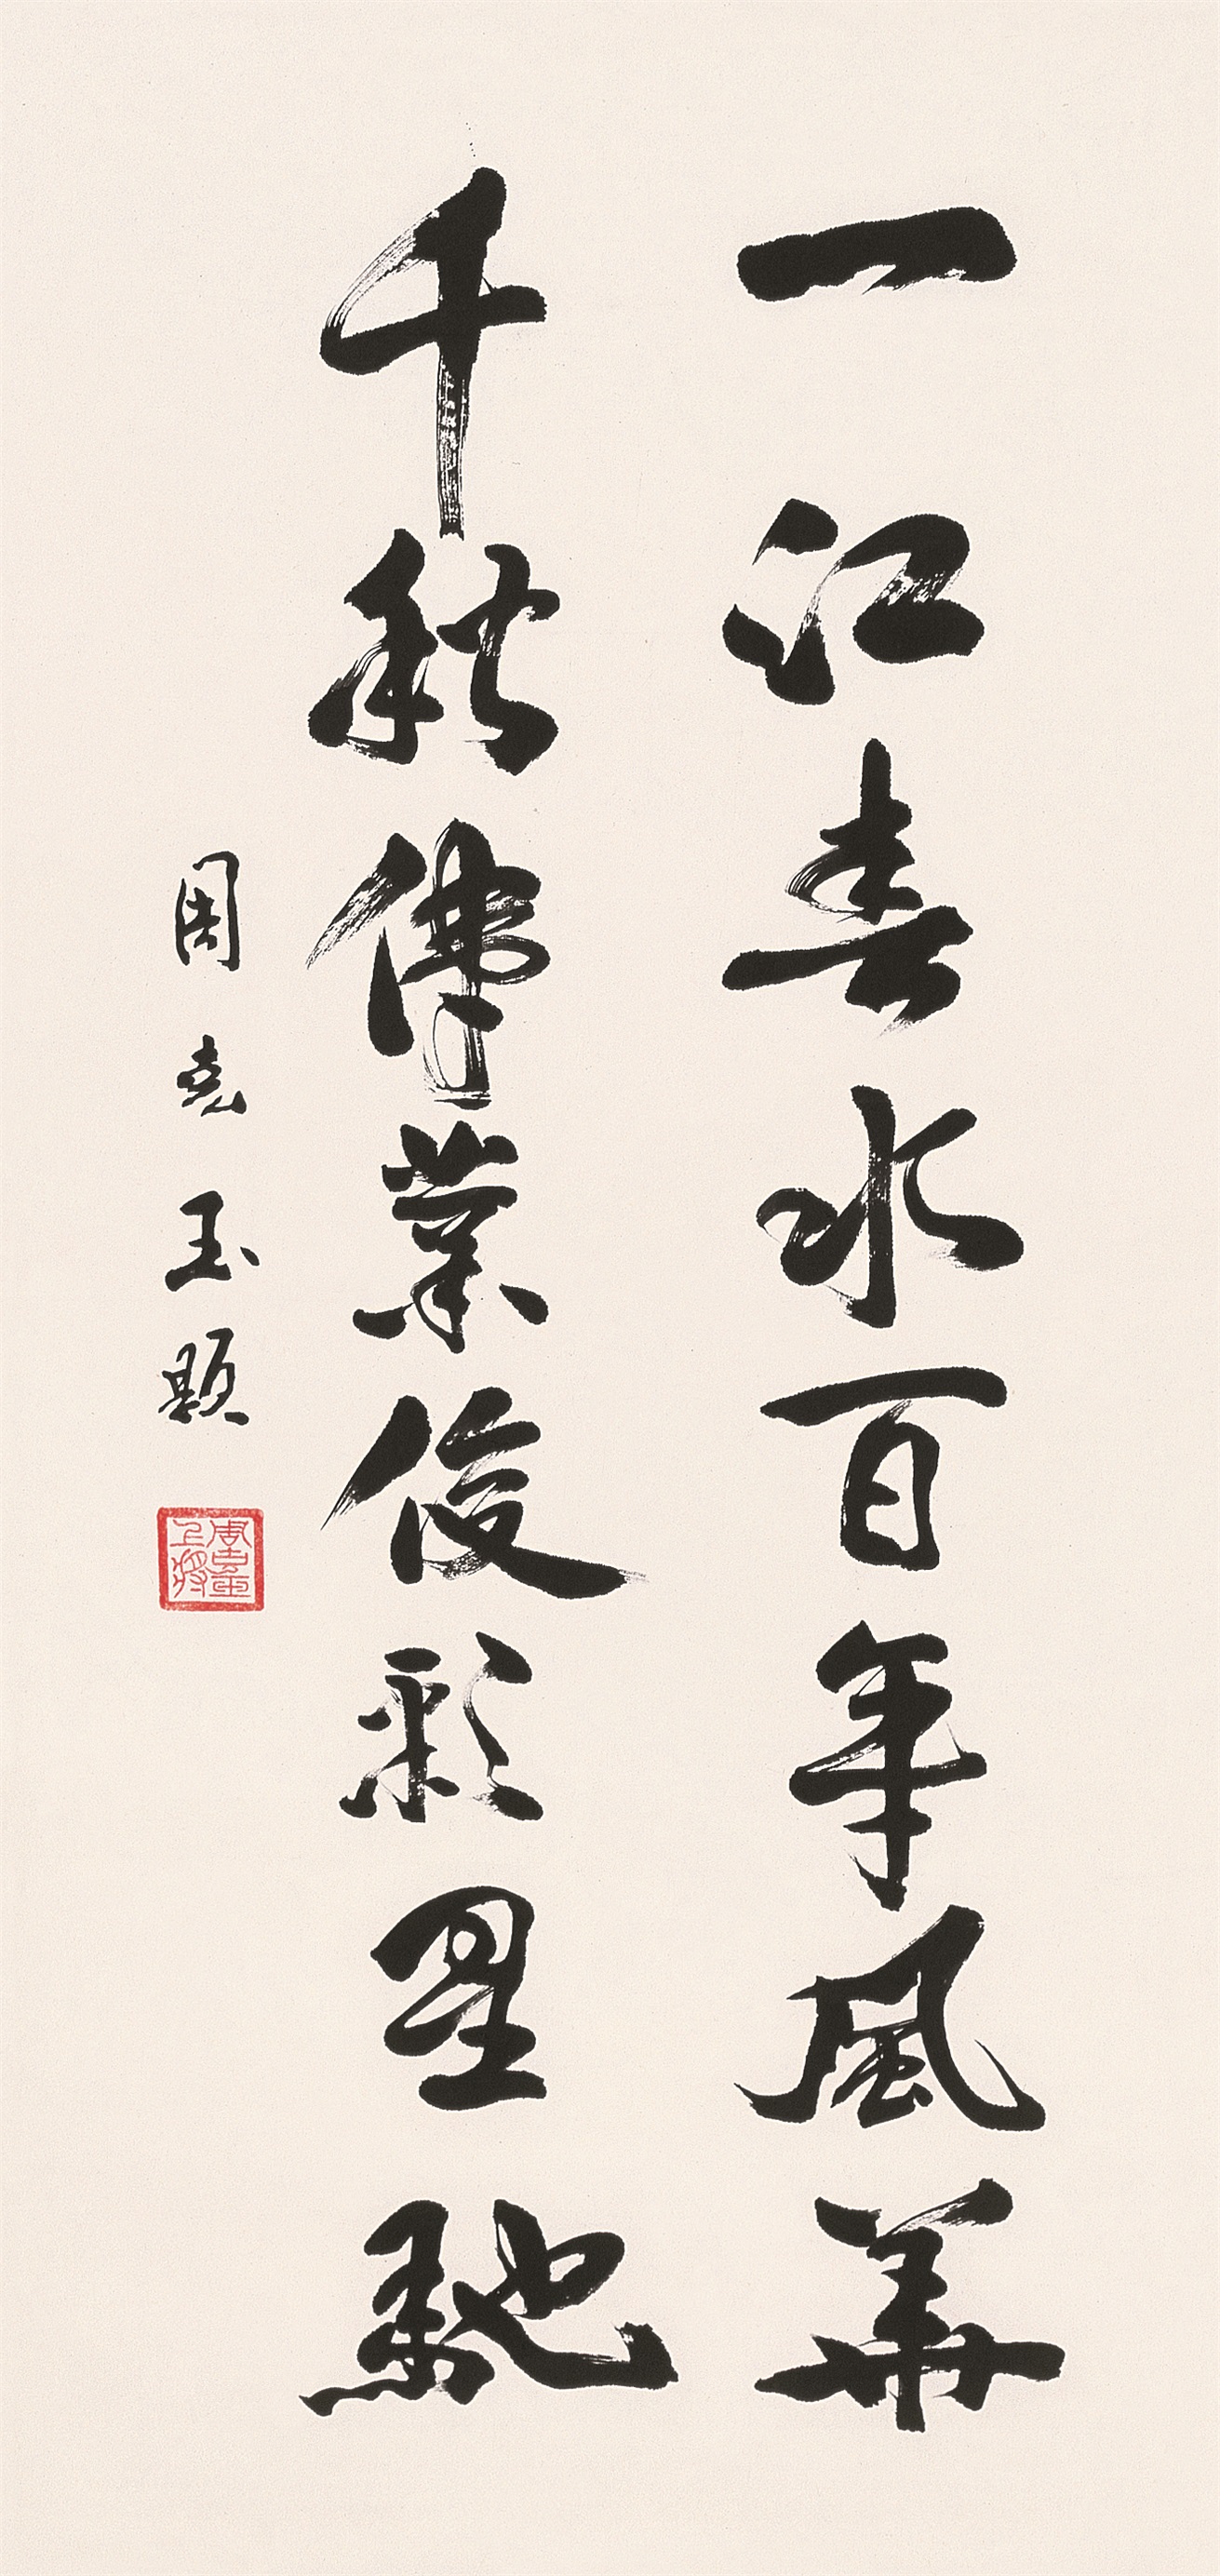 一江春水百年風華
千秋偉業俊彩星馳
周克玉題
周克玉
上將